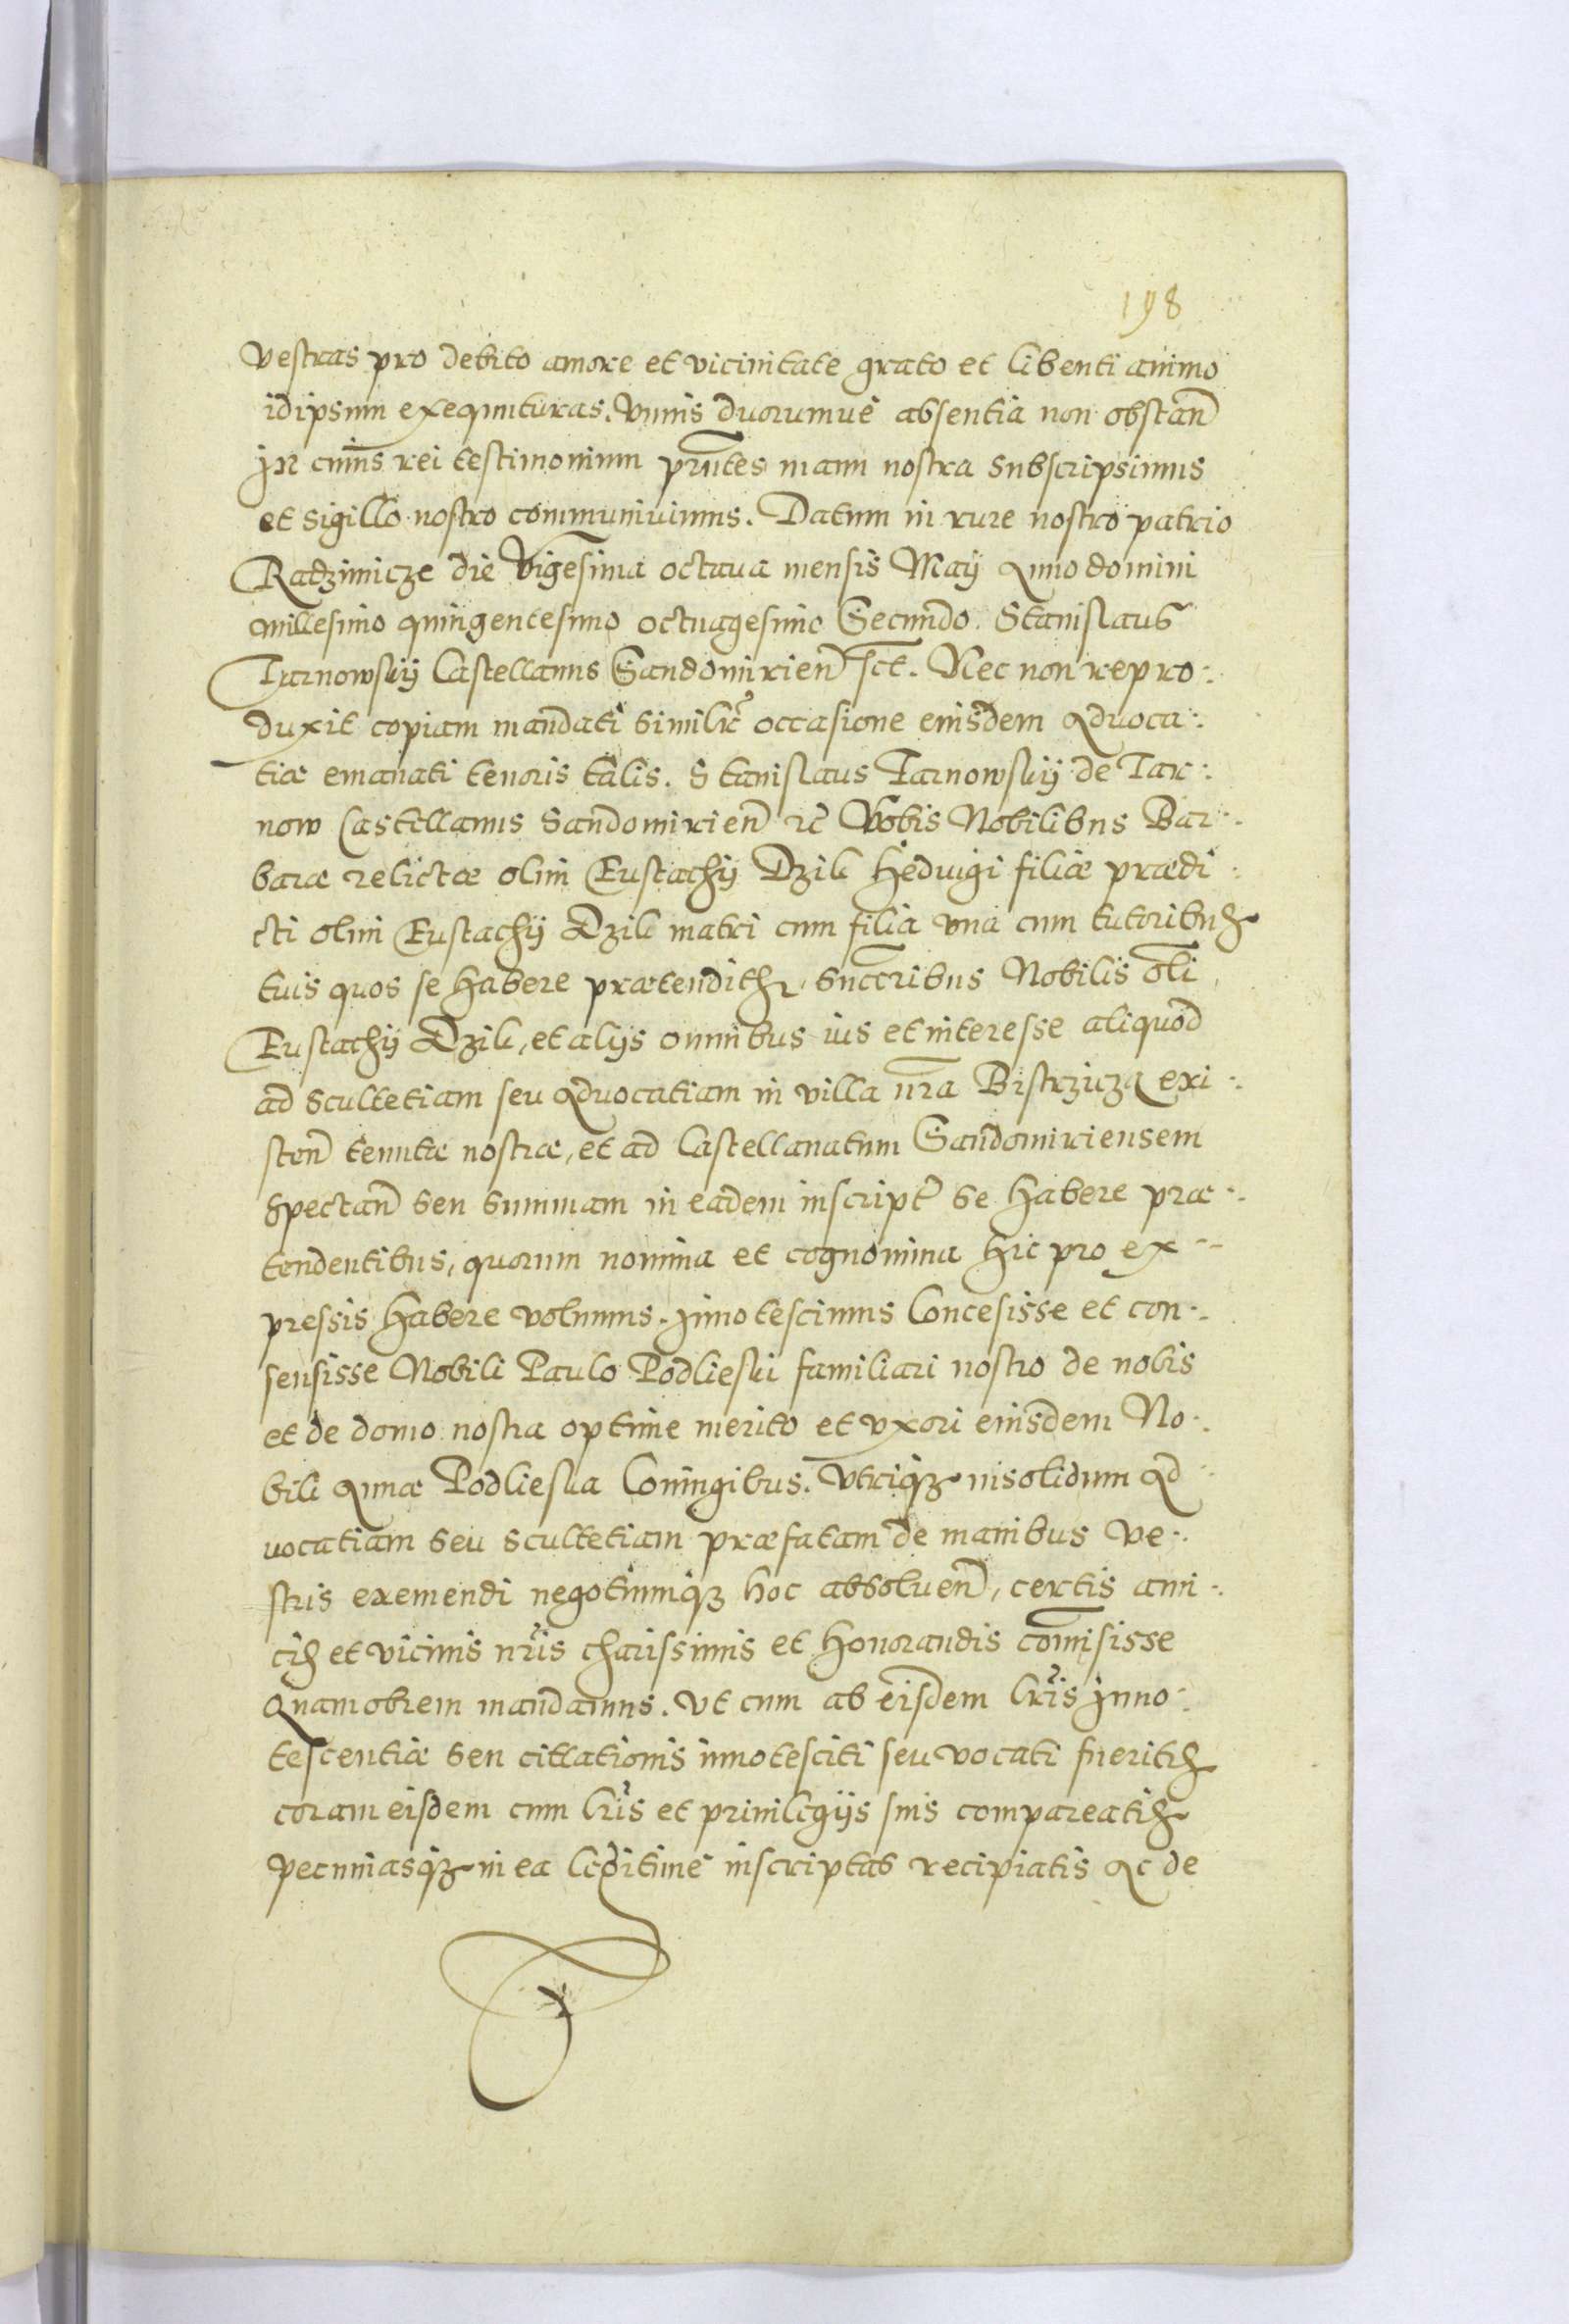 198
vestras pro debito amore et vicinitate grato et libenti animo
idipsum exequuturas. Vnius duorumue absentia non obstañ
In cuius rei testimonium pr̃ntes manu nostra subscripsimus
et sigillo nostro communiuimus. Datum in rure nostro patrio
Radzimicze die Vigesima octaua mensis Maÿ Anno domini
millesimo quingentesimo octuagesimo Secundo. Stanislaus
Tarnowskÿ Castellanus Sandomirieñ sct. Nec non repro:
duxit copiam mandati similit̃ occasione eiusdem Aduoca:
tiæ emanati tenoris talis. Stanislaus Tarnowskÿ de Tar:
now Castellanus Sandomirieñ zc̃ Vobis Nobilibus Bar:
baræ relictæ olim Eustachÿ Dzik Heduigi filiæ prædi:
cti olim Eustachÿ Dzik matri cum filia vna cum tutoribus
tuis quos se habere prætenditis succ̃ribus Nobilis oli
Eustachÿ Dzik, et alÿs omnibus ius et interesse aliquod
ad scultetiam seu Aduocatiam in villa nr̃a Bistrzicza exi:
steñ tenutæ nostræ, et ad Castellanatum Sandomiriensem
spectañ seu summam in eadem inscript̃ se habere præ:
tendentibus, quorum nomina et cognomina hic pro ex
pressis habere volumus. Innotescimus Concesisse et con:
sensisse Nobili Paulo Podlieski familiari nostro de nobis
et de domo nostra optime merito et vxori eiusdem No:
bili Annæ Podlieska Coniugibus. Vtriq3 insolidum Ad
uocatiam seu scultetiam præfatam de manibus ve:
stris exemendi negotiumq3 hoc absolueñ, certis ami:
cis et vicinis nr̃is charissimis et honorandis com̃isisse
Quamobrem mandamus. Vt cum ab eisdem lr̃is Inno:
tescentiæ seu cittationis innotesciti seu vocati fueritis
coram eisdem cum lr̃is et priuilegÿs suis compareatis
pecuniasq3 in ea legitime inscriptas recipiatis Ac de